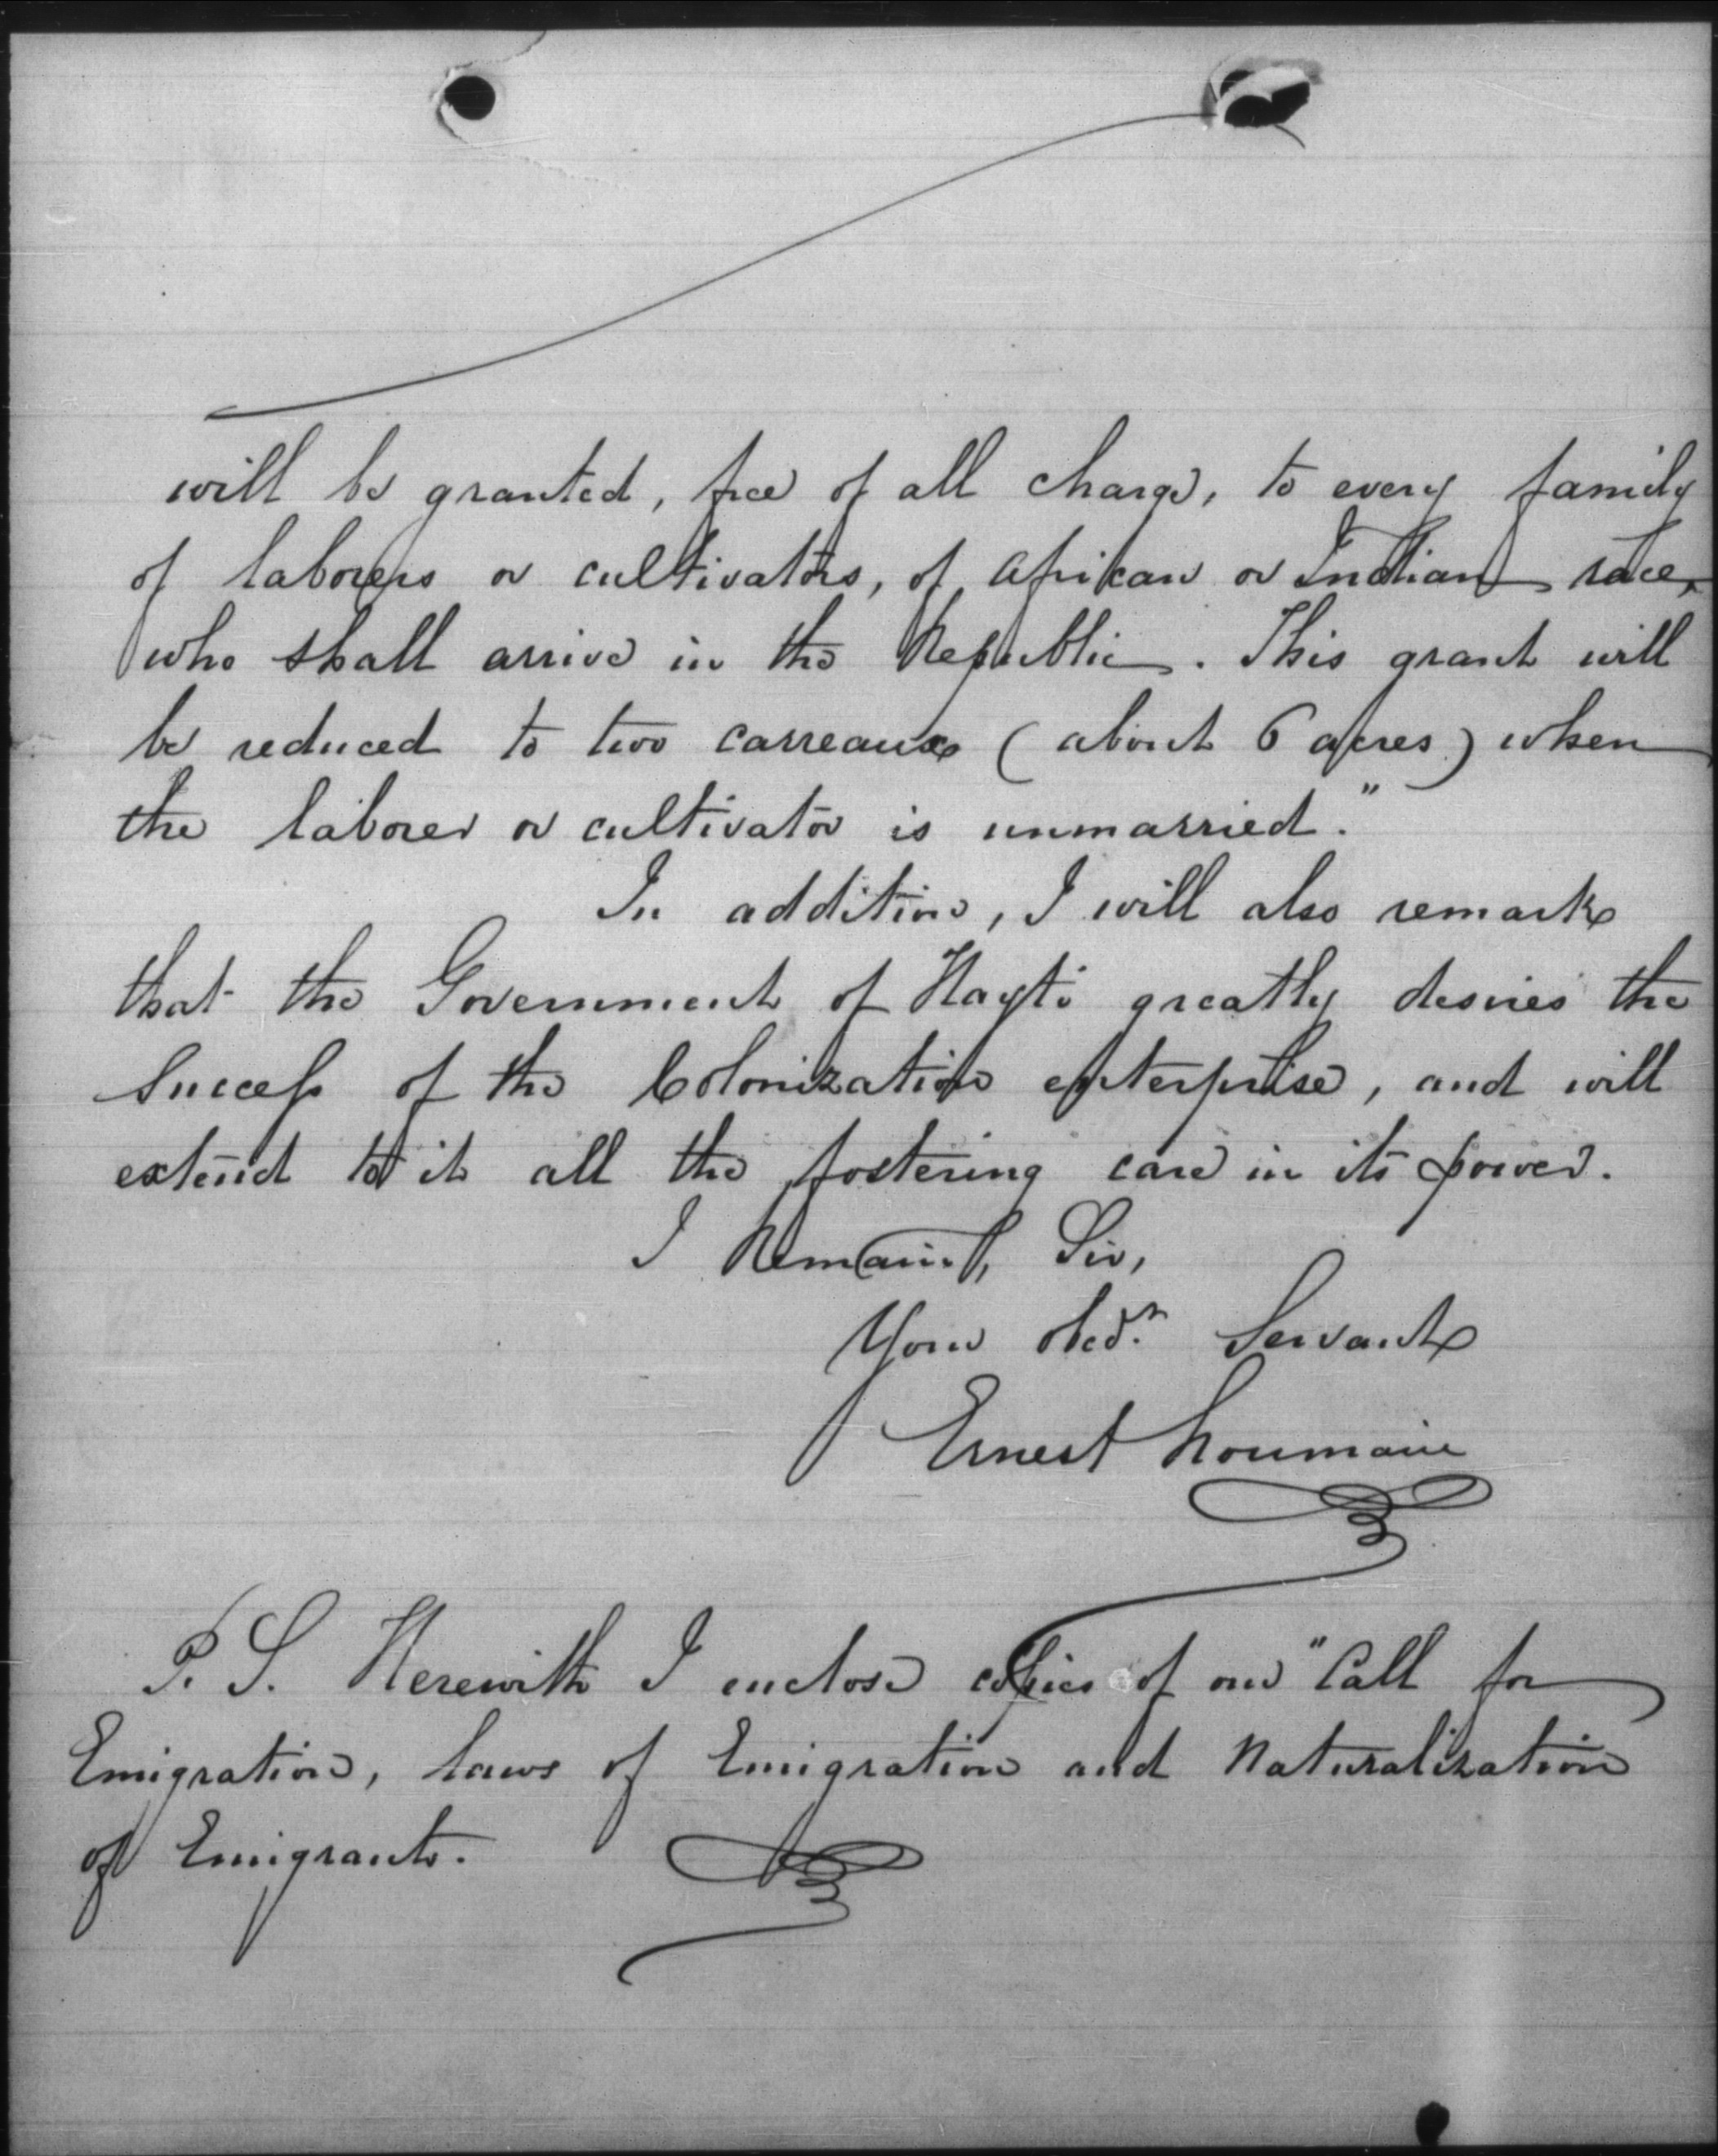 will be granted, free of all charge, to every family
of laborers or cultivators, of African or Indian race,
who shall arrive in the Republic. This grant will
be reduced to two carreaux (about 6 acres) when
the laborer or cultivator is unmarried."
In addition, I will also remark
that the Government of Hayti greatly desires the
Success of the Colonization enterprise, and will
extend to it all the fostering care in its power.
I Remain, Sir,
Your obedt. Servant
Ernest Roumain
P. S. Herewith I enclose copies of our "Call for
Emigration, laws of Emigration and Naturalization
of Emigrants.